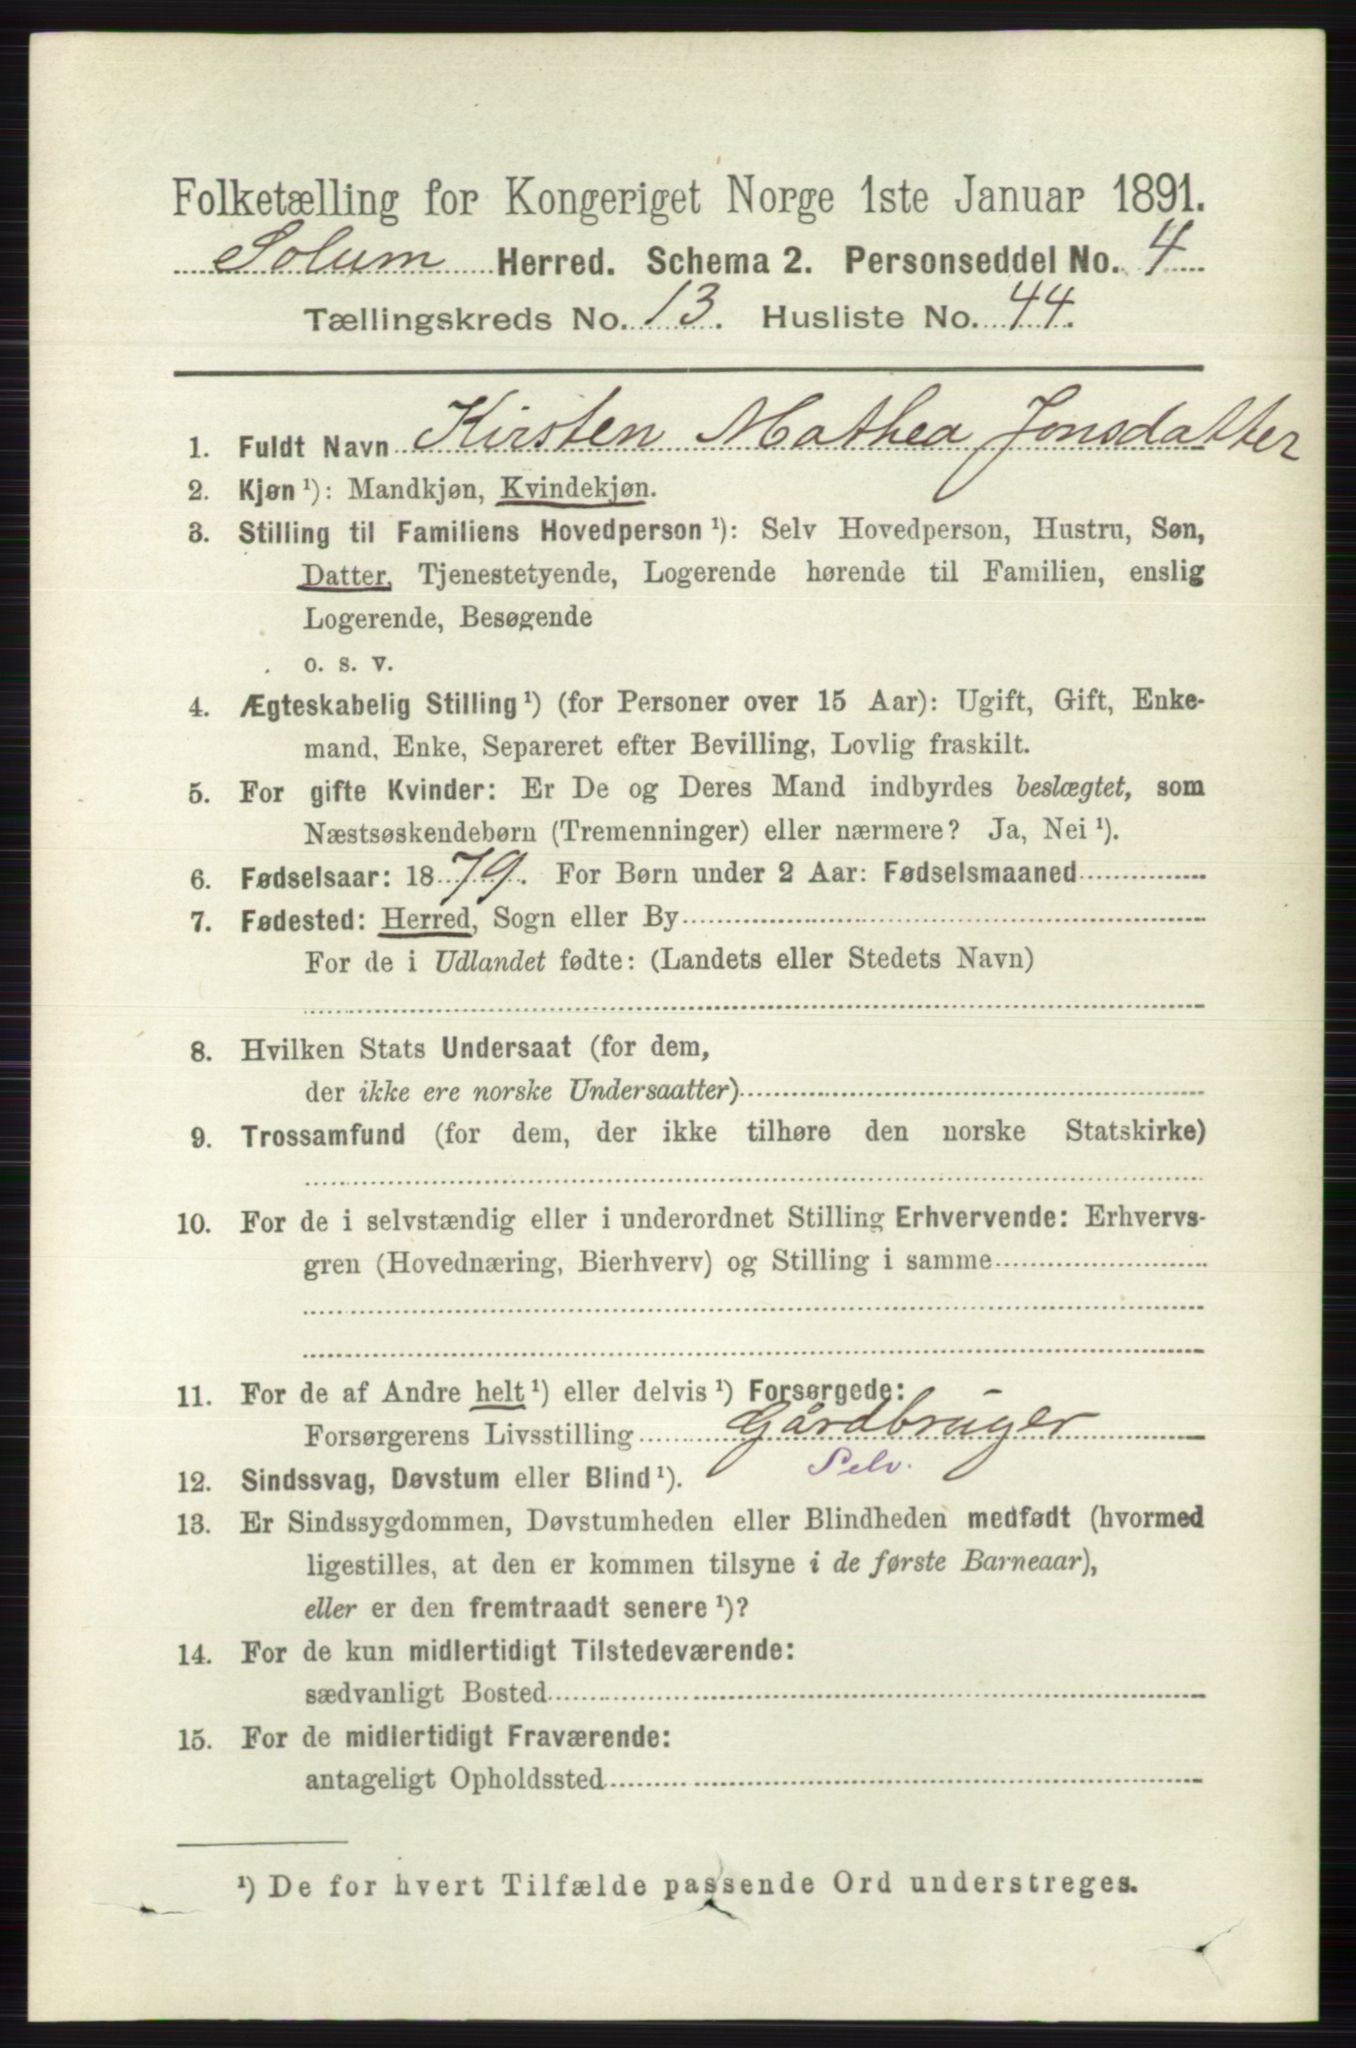 Folketælling for Kongeriget Norge 1ste Januar 1891.
Solum Herred. Schema 2. Personseddel No. 4
Tællingskreds No. 13. Husliste No. 44.
1. Fuldt Navn Kirsten Mathea Jonsdatter
2. Kjøn ¹): Mandkjøn, Kvindekjøn.
3. Stilling til Familiens Hovedperson ¹): Selv Hovedperson, Hustru, Søn,
Datter, Tjenestetyende, Logerende hørende til Familien, enslig
Logerende, Besøgende
o. s. v.
4. Ægteskabelig Stilling ¹) (for Personer over 15 Aar): Ugift, Gift, Enke-
mand, Enke, Separeret efter Bevilling, Lovlig fraskilt.
5. For gifte Kvinder: Er De og Deres Mand indbyrdes beslægtet, som
Næstsøskendebørn (Tremenninger) eller nærmere? Ja, Nei ¹).
6. Fødselsaar: 1879. For Børn under 2 Aar: Fødselsmaaned
7. Fødested: Herred, Sogn eller By
For de i Udlandet fødte: (Landets eller Stedets Navn)
8. Hvilken Stats Undersaat (for dem,
der ikke ere norske Undersaatter)
9. Trossamfund (for dem, der ikke tilhøre den norske Statskirke)
10. For de i selvstændig eller i underordnet Stilling Erhvervende: Erhvervs-
gren (Hovednæring, Bierhverv) og Stilling i samme
11. For de af Andre helt ¹) eller delvis ¹) Forsørgede:
Forsørgerens Livsstilling Gårdbruger
Selv.
12. Sindssvag, Døvstum eller Blind ¹).
13. Er Sindssygdommen, Døvstumheden eller Blindheden medfødt (hvormed
ligestilles, at den er kommen tilsyne i de første Barneaar),
eller er den fremtraadt senere ¹)?
14. For de kun midlertidigt Tilstedeværende:
sædvanligt Bosted
15. For de midlertidigt Fraværende:
antageligt Opholdssted
¹) De for hvert Tilfælde passende Ord understreges.